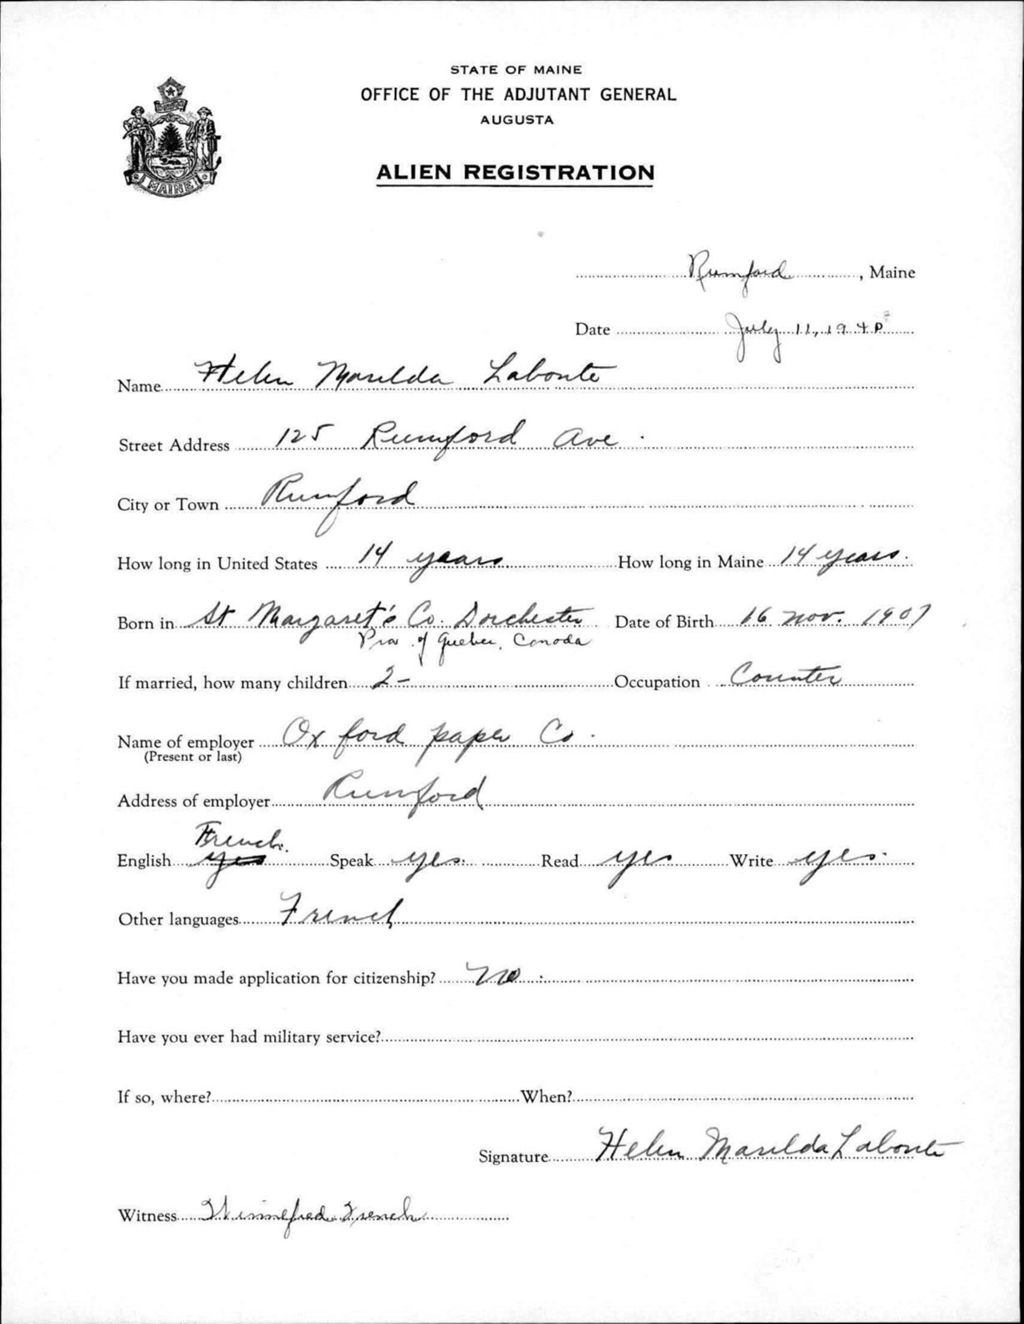 STATE OF MAINE
OFFICE OF THE ADJUTANT GENERAL
AUGUSTA
ALIEN REGISTRATION
MAINE
Rumford, Maine
Date July 11, 1940
Name Helen Marilda Labonte
Street Address 125 Rumford Ave.
City or Town Rumford
How long in United States 14 years How long in Maine 14 years.
Born in St Margaret's Co. Dorchester Date of Birth 16 Nov. 1907
Prov of Quebec, Canada
If married, how many children 2- Occupation Counter
Name of employer Oxford paper Co.
(Present or last)
Address of employer Rumford
French.
English yes Speak yes. Read yes Write yes.
Other languages French
Have you made application for citizenship? No.
Have you ever had military service?
If so, where? When?
Signature Helen Marilda Labonte
Witness Winnefred French